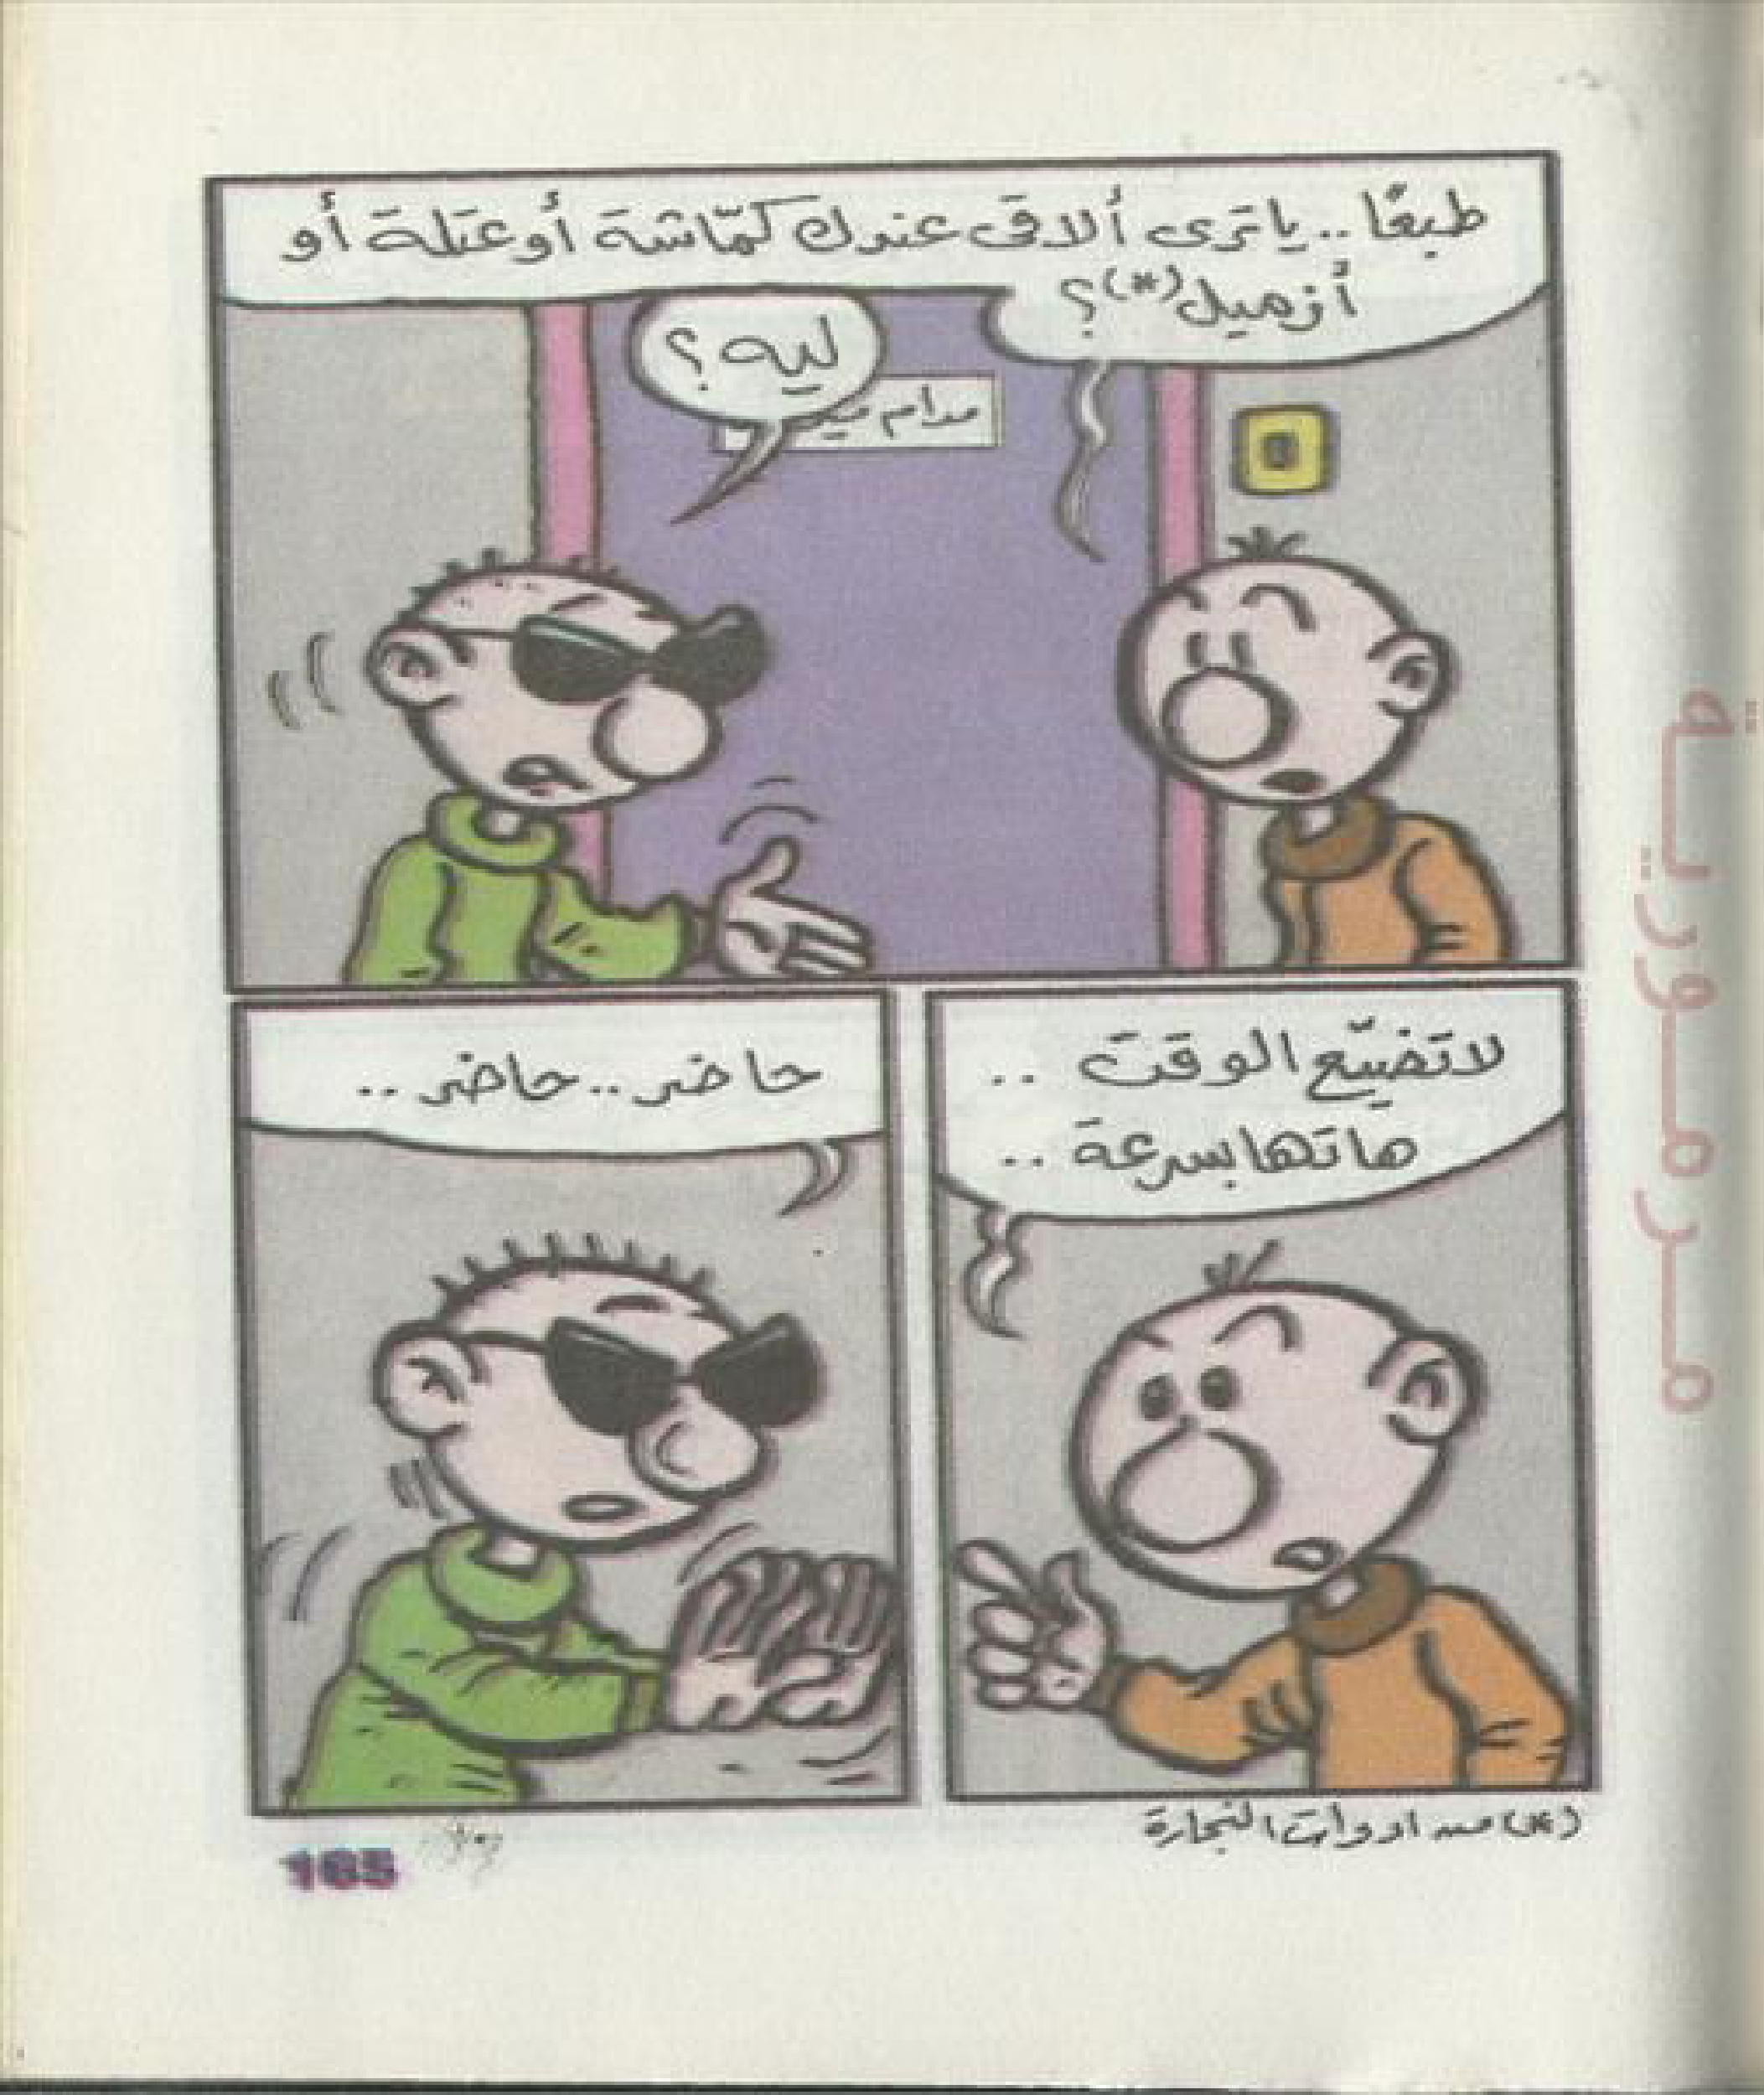 طبعًا.. ياترى ألاقى عندك كمّاشة أو عتلة أو
أزميل(*)؟
ليه؟
مدام
لا تضيّع الوقت ..
هاتها بسرعة ..
حاضر.. حاضر..
(*) من ادوات النجارة
165
مرمورية